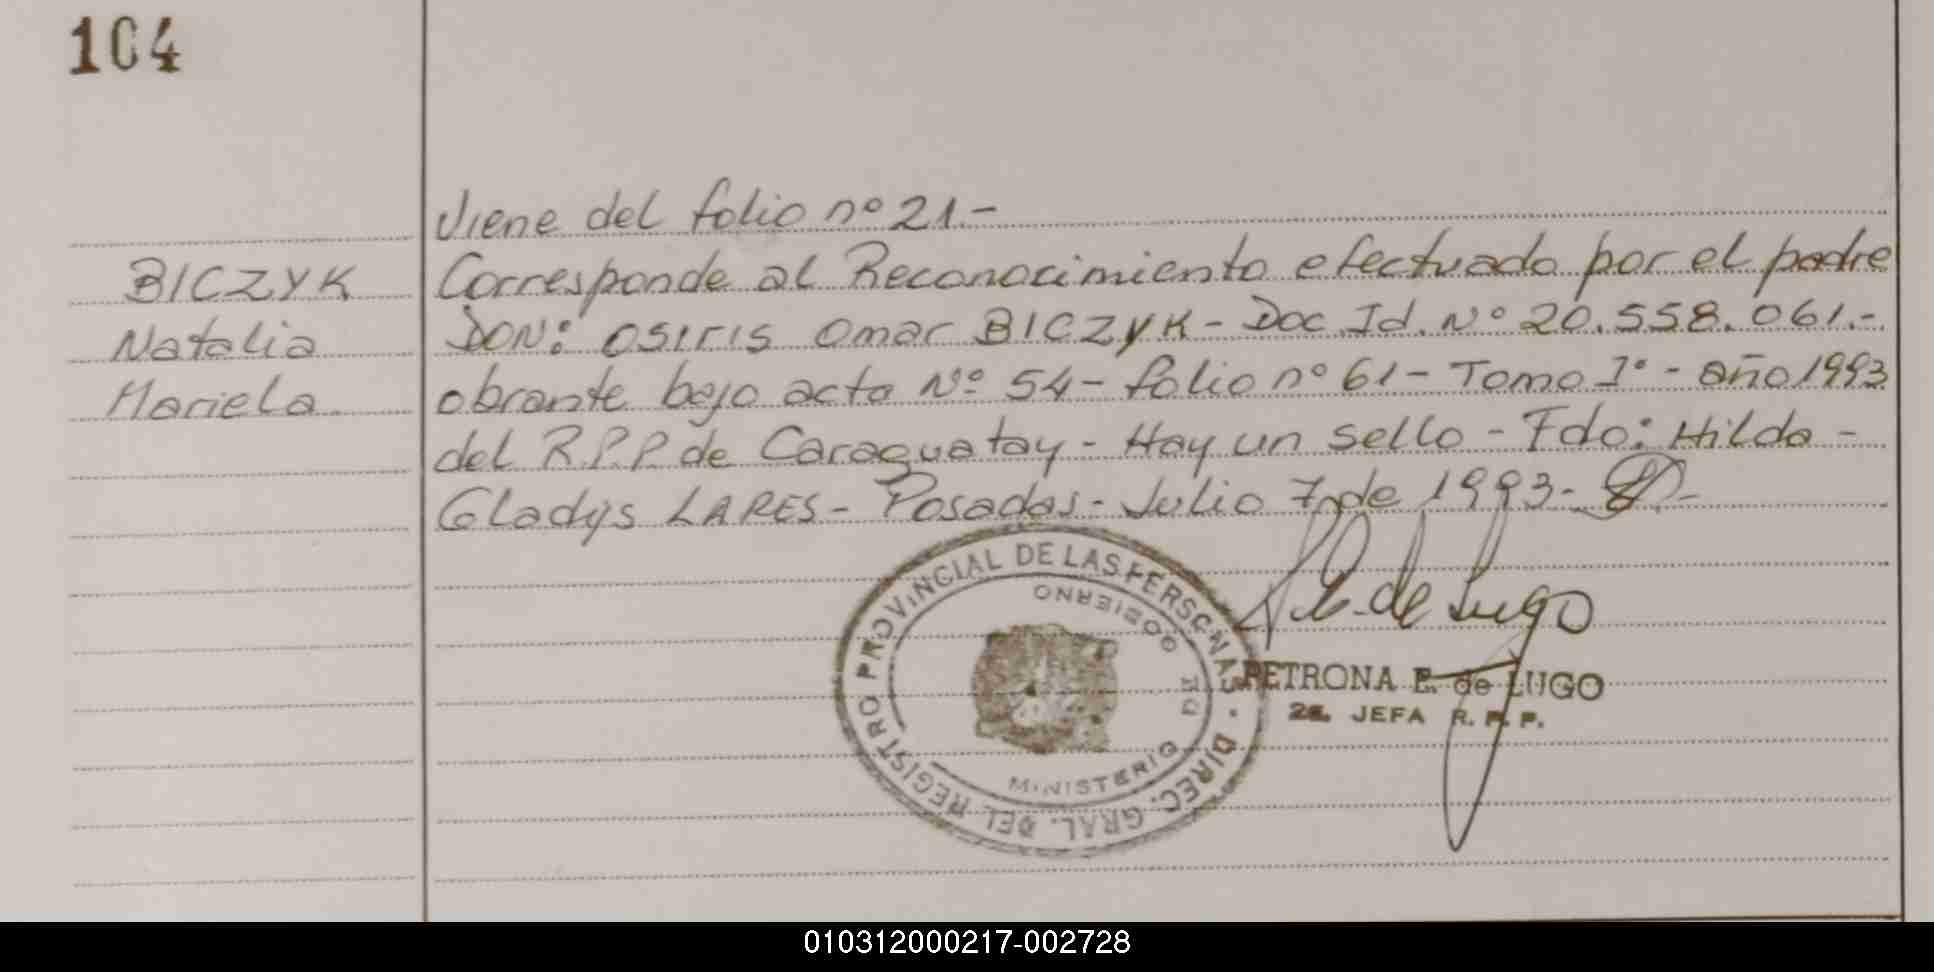 104
Viene del folio nº 21.-
BICZYK
Natalia
Mariela
Corresponde al Reconocimiento efectuado por el padre
DON: OSIRIS Omar BICZYK - Doc. Id. Nº 20.558.061.-
obrante bajo acta Nº 54 - folio nº 61 - Tomo Iº - año 1993
del R.P.P. de Caraguatay - Hay un sello - Fdo: Hilda -
Gladys LARES - Posadas - Julio 7 de 1993.-
P. E. de Lugo
PETRONA E. de LUGO
2a. JEFA R. P. P.
DIREC. GRAL. DEL REGISTRO PROVINCIAL DE LAS PERSONAS
MINISTERIO DE GOBIERNO
010312000217-002728